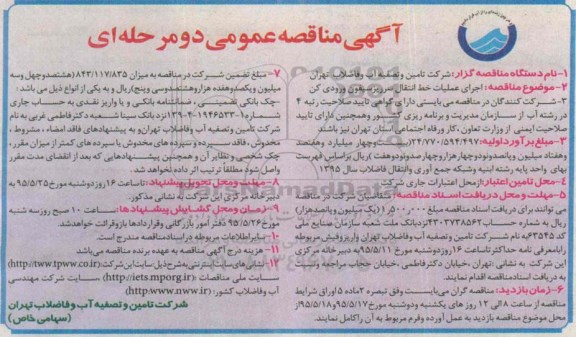 آگهی مناقصه عمومی دو مرحله ای
۱-نام دستگاه مناقصه گزار: شرکت تامین وتصفیه آب وفاضلاب تهران
۲-موضوع مناقصه: اجرای عملیات خط انتقال سرریز سیفون ورودی کن
۳-شرکت کنندگان در مناقصه می بایستی دارای گواهی تایید صلاحیت رتبه ۴
در رشته آب از سازمان مدیریت و برنامه ریزی کشور وهمچنین دارای تایید
صلاحیت ایمنی از وزارت تعاون ،کار ورفاه اجتماعی استان تهران نیز باشند.
۳-مبلغ برآورد اولیه:
وهفتاد میلیون وپانصدونودوچهارهزاروچهارصدونودوهفت )ریال براساس فهرست
بهای واحد پایه رشته ابنیه وشبکه جمع آوری وانتقال فاضلاب سال ۱۳۹۵
۴-محل تامین اعتبار: از محل اعتبارات جاری شرکت
۵-مهلت و محل دریافت اسناد مناقصه: متقاضیان شرکت در مناقصه
می توانند برای دریافت اسناد مناقصه مبلغ (یک میلیون وپانصدهزار)
ریال به شماره حساب نزدبانک ملت شعبه سازمان صنایع ملی
کد ۶۳۵۴۵ به نام شرکت تامین و تصفیه آب وفاضلاب تهران واریزوفیش مربوطه
رابامعرفی نامه حداکثرتاساعت ۱۶ روزدوشنبه مورخ ۹۵/۵/۱۱ به دبیرخانه مرکزی
این شرکت به نشانی :تهران ،خیابان دکترفاطمی ،خیابان حجاب مراجعه ونسبت
به دریافت اسنادمناقصه اقدام نمایند.
۶-زمان بازدید: مناقصه گران می بایست وفق تبصره ۲ماده ۵اوراق شرایط
مناقصه از ساعت ۸الی ۱۲ روز های یکشنبه ودوشنبه مورخ ۹۵/۵/۱۷و۹۵/۵/۱۸از
محل موضوع مناقصه بازدید به عمل آورده وفرم مربوط به آن راکامل نمایند.
۷- مبلغ تضمین شرکت در مناقصه به میزان ۸۴۳/۱۱۷/۸۳۵ (هشتصدوچهل وسه
میلیون ویکصدوهفده هزاروهشتصدوسی وپنج)ریال و به یکی از انواع ذیل می باشد :
-چک بانکی تضمینی ، ضمانتنامه بانکی و یا واریز نقدی به حساب جاری
شماره نزد بانک سینا شعبه دکترفاطمی غربی به نام
شرکت تامین وتصفیه آب وفاضلاب تهران،و به پیشنهادهای فاقد امضاء ، مشروط ،
مخدوش ، فاقد سپرده و سپرده های مخدوش یا سپرده های کمتر از میزان مقرر،
چک شخصی و نظایر آن و همچنین پیشنهادهایی که بعد از انقضای مدت مقرر
واصل شود مطلقا ترتیب اثر داده نخواهد شد.
۸-مهلت و محل تحویل پیشنهاد: تاساعت ۱۶ روزدوشنبه مورخ ۹۵/۵/۲۵ به
دبیرخانه مرکزی این شرکت به نشانی مذکور.
۹-زمان ومحل گشایش پیشنهادها: ساعت ۱۰ صبح روزسه شنبه
مورخ ۹۵/۵/۲۶ دفتر امور بازرگانی وقراردادها بازوقرائت خواهدشد.
۱۰-سایراطلاعات مربوطه دراسنادمناقصه مندرج است.
۱۱-هزینه درج آگهی مناقصه به عهده برنده مناقصه می باشد.
۱۲-نشانی های اینترنتی:به شرح ذیل،سایت این شرکت: (http://tww.tpww.co.ir)
سایت ملی مناقصات (http://iets.mporg.ir) سایت شرکت مهندسی
آب وفاضلاب کشور: (http:www.nww.ir)
شرکت تامین و تصفیه آب و فاضلاب تهران
(سهامی خاص)